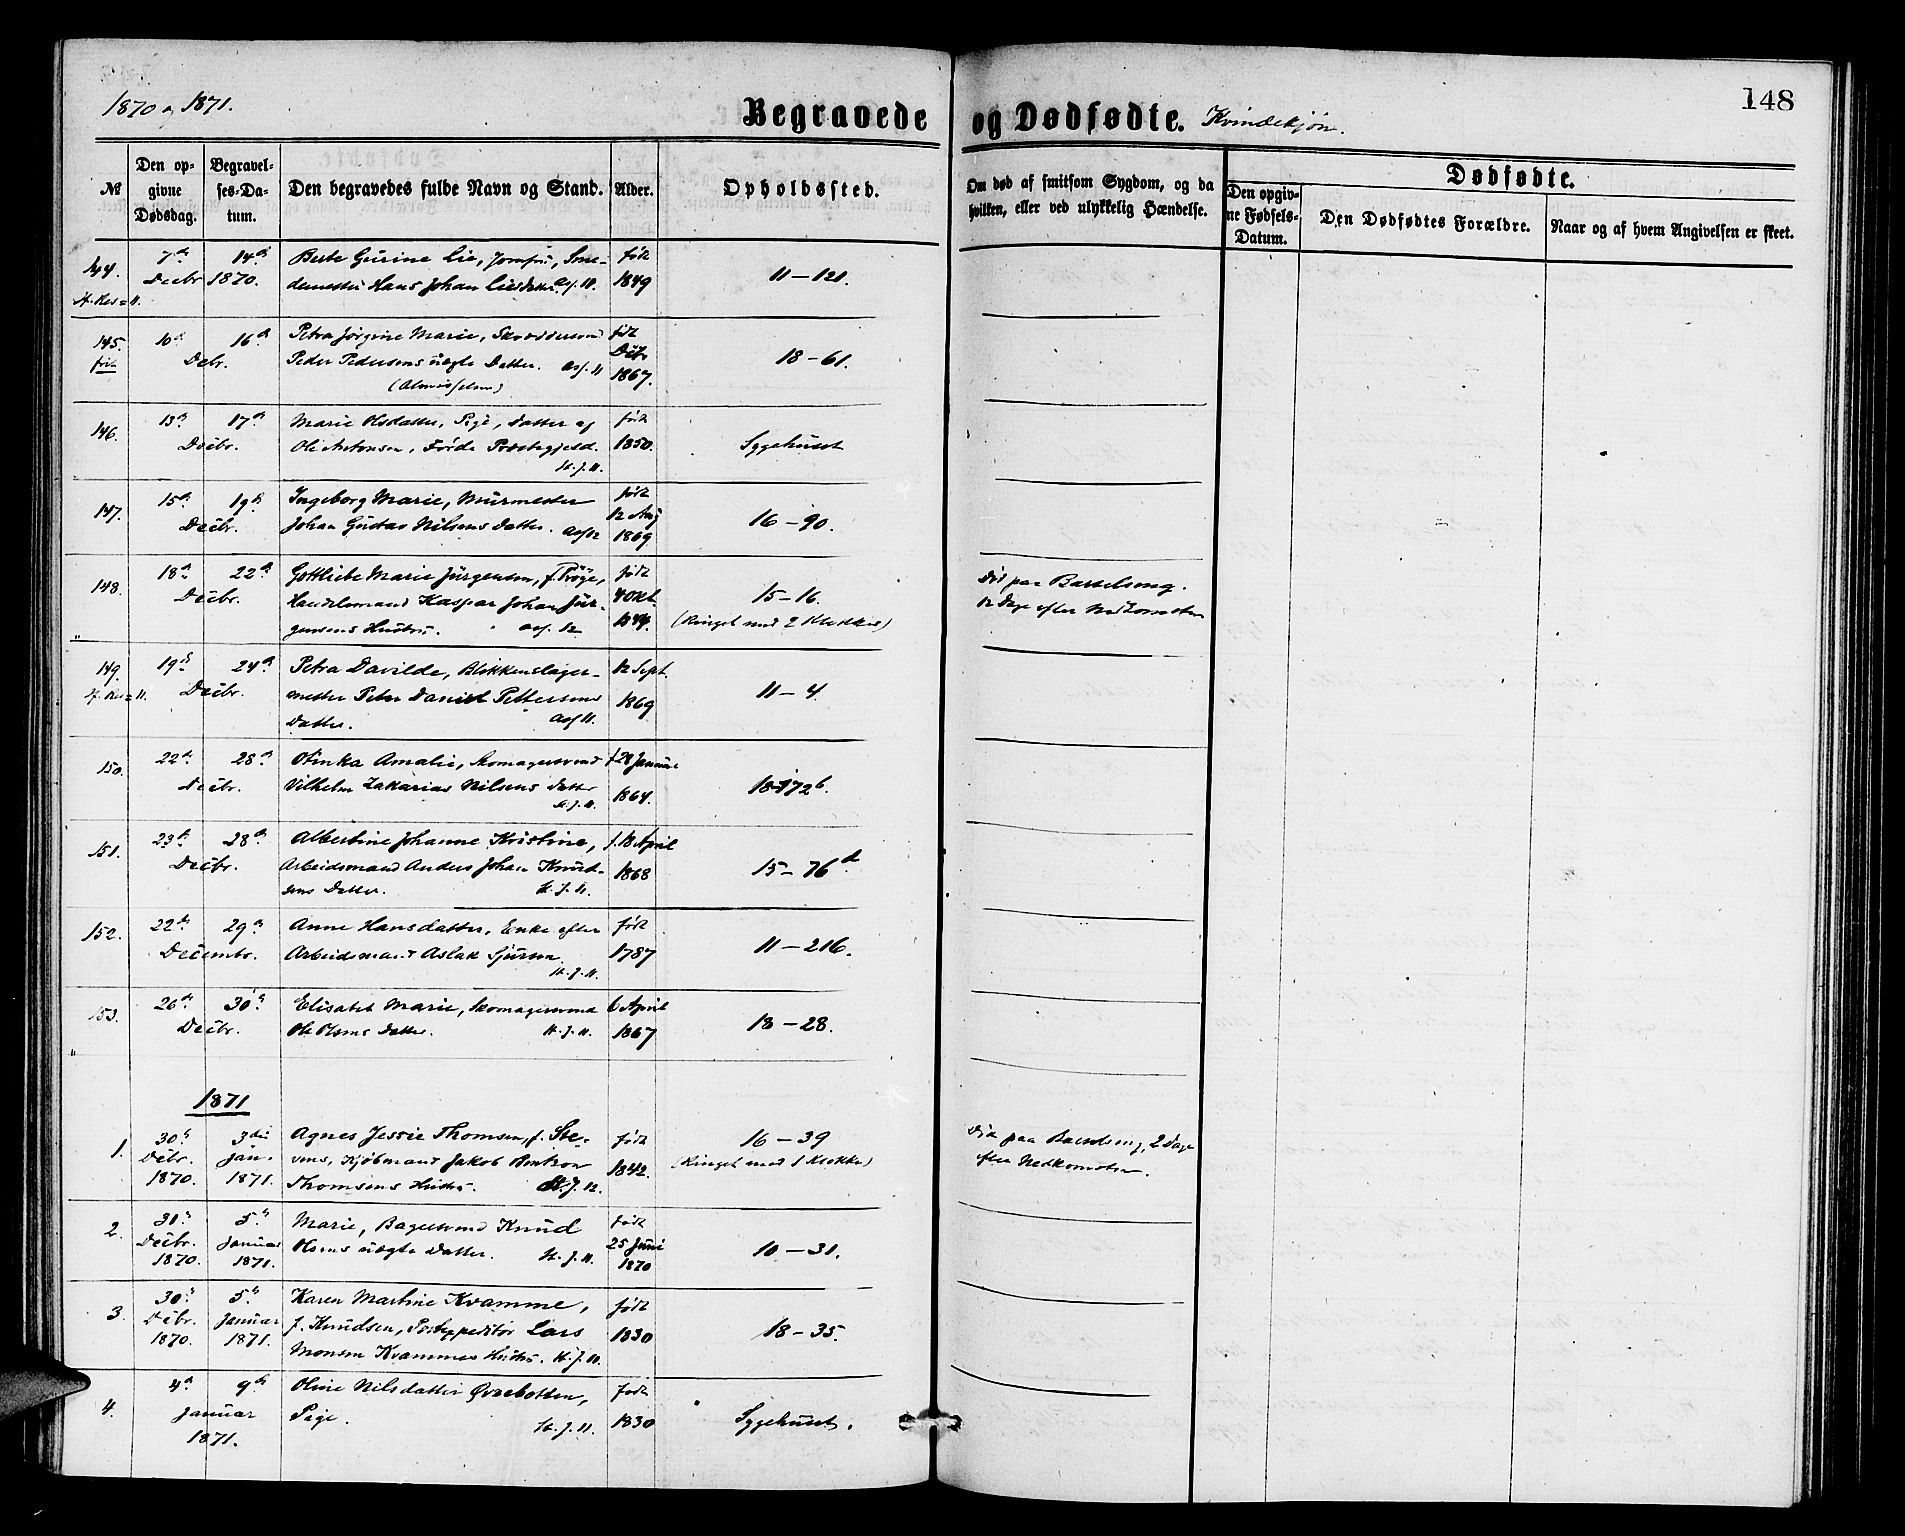 1870 og 1871.
Begravede og Dødfødte. Kvindekjøn.
148
№
Den opgivne Dødsdag.
Begravelses-Datum.
Den begravedes fulde Navn og Stand.
Alder.
Opholdssted.
Om død af smitsom Sygdom, og da hvilken, eller ved ulykkelig Hændelse.
Dødfødte.
Den opgivne Fødsels-Datum.
Den Dødfødtes Forældre.
Naar og af hvem Angivelsen er skeet.
144. 7de 14de Berte Gurine Lie, Jomfru, Sme- født
Decbr 1870. demester Hans Johan Lies Datter. Asf. 11. 1849 11 – 121.
145. 10de 16de Petra Jørgine Marie, Skræddersvend født
fri. Debr. Peder Pedersens uægte Datter. Asf. 11 Debr 18 – 61.
(Almisselem) 1867.
146. 13de 17de Marie Olsdatter, Pige, Datter af født
Decbr. Ole Antonsen, Førde Præstegjeld. 1850. Sygehuset
St. J. 11.
147. 15de 19de Ingeborg Marie, Murmester født
Decbr. Johan Gustav Nilsens Datter. Asf 12 12 Aug 16 – 90.
1869
148. 18de 22de Gottliebe Marie Jürgensen, f. Prøje, født Død paa Barselseng.
Decbr. Handelsmand Kaspar Johan Jür- 4 Okt. 15 – 16. 12 Dage efter Nedkomsten
gensens Hustru. Asf. 12 1844. (Ringet med 2 Klokker)
149. 19de 24de Petra Davilde, Blikkenslager- 12 Sept.
Decbr. mester Peter Daniel Pettersens 1869 11 – 4.
Datter. Asf 11.
150. 22de 28de Otinka Amalie, Skomagersvend f. 28 Januar
Decbr. Vilhelm Zakarias Nilsens Datter 1864. 18 – 172b.
St. J. 11.
151. 23de 28de Albertine Johanne Kristine, f. 18 April
Decbr. Arbeidsmand Anders Johan Knud- 1868 15 – 76d
sens Datter. St. J. 11.
152. 22de 29de Anne Hansdatter, Enke efter født
Decembr. Arbeidsmand Aslak Sjursen 1787 11 – 216.
St. J. 11.
153. 26de 30de Elisabet Marie, Skomagersvend 6 April
Decbr. Ole Olsens Datter. St. J. 11. 1867 18 – 28.
1871
1. 30de 3die Agnes Jessie Thomsen, f. Ste- født 16 – 39 Død paa Barselseng, 2 Dage
Decbr. Jan. vens, Kjøbmand Jakob Bentzon 1842. (Ringet med 1 Klokke) efter Nedkomsten.
1870. 1871. Thomsens Hustru. St. J. 12.
2. 31de 5te Marie, Bagersvend Knud født
Decbr. Januar Olsens uægte Datter. St. J. 11. 25 Juni 10 – 31.
1870. 1871. 1870
3. 30de 5te Karen Martine Kvamme, født
Decbr. Januar f. Knudsen, Postexpeditør Lars 1830 18 – 35.
1870. 1871. Monsen Kvammes Hustru. St. J. 11.
4. 4de 9de Oline Nilsdatter Øvrebotten, født
Januar Pige. St. J. 11. 1830 Sygehuset.
1871.